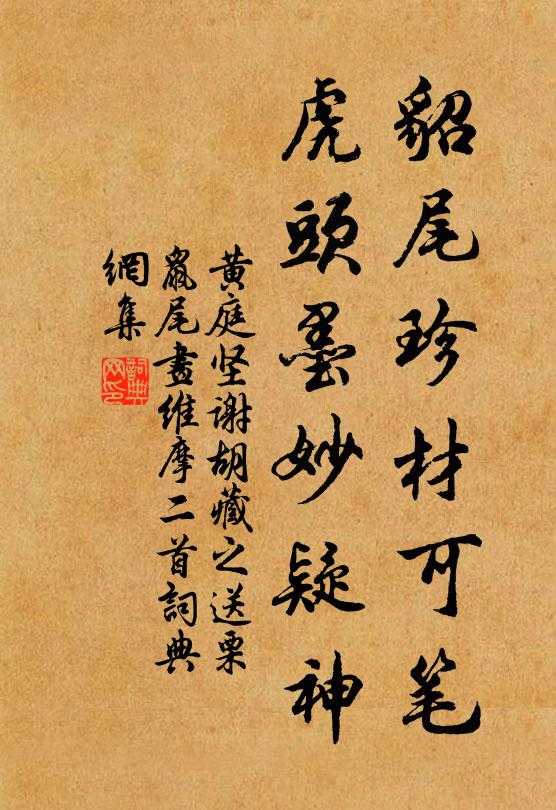 貂尾珍材可笔
虎頭墨妙疑神
黄庭坚謝胡藏之送栗
鼠尾畫維摩二首詞典
網集
詞典
网印